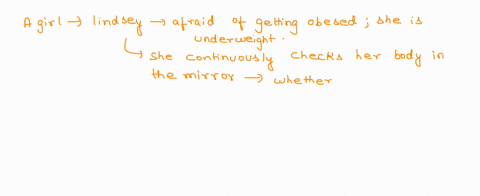 A girl → lindsey → afraid of getting obesed ; she is
underweight.
↳ she continuously checks her body in
the mirror → whether